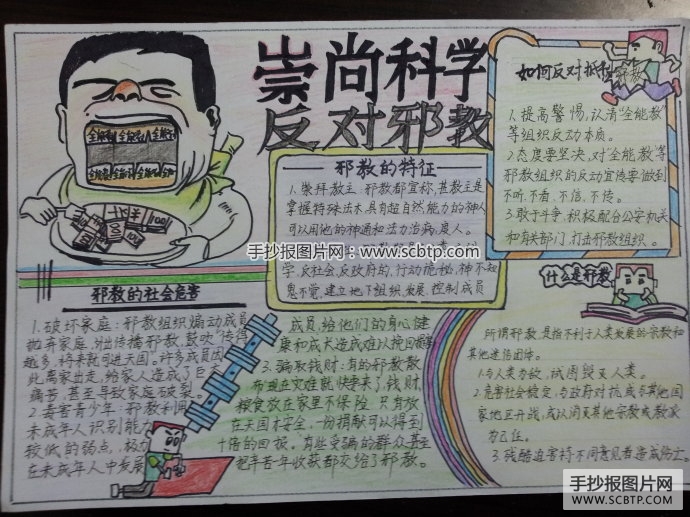 崇尚科学
反对邪教
全能教 全能教 全能
邪教的特征
1.崇拜教主:邪教都宣称,其教主是
掌握特殊法术,具有超自然能力的神人
可以用他的神通和法力治病,度人。
学,反社会,反政府的,行动诡秘,神不知
鬼不觉,建立地下组织,发展、控制成员
如何反对抵制邪教
1.提高警惕,认清"全能教"
等组织反动本质。
2.态度要坚决,对"全能教"等
邪教组织的反动宣传要做到
不听、不看、不信、不传。
3.敢于斗争,积极配合公安机关
和有关部门,打击邪教组织。
手抄报图片网:www.scbtp.com
邪教的社会危害
1.破坏家庭:邪教组织煽动成员
抛弃家庭,外出传播邪教,鼓吹"传得
越多,将来就可进天国"。许多成员因
此离家出走,给家人造成了巨大
痛苦,甚至导致家庭破裂。
2.毒害青少年:邪教利用
未成年人识别能力
较低的弱点,极力
在未成年人中发展
成员,给他们的身心健
康和成长造成难以挽回的
3.骗取钱财:有的邪教散
布现在灾难就快要来了,钱财,
粮食放在家里不保险,只有放
在天国才安全,一份捐献可以得到
十倍的回报,有些受骗的群众甚至
把辛苦一年收获都交给了邪教。
什么是邪教
所谓邪教,是指不利于人类发展的宗教和
其他迷信团体。
1.与人类为敌,试图毁灭人类。
2.危害社会稳定,与政府对抗或与其他国
家地区开战,或认同灭其他宗教或教派
为己任。
3.残酷迫害持不同意见者造成伤亡。
手抄报图片网
WWW.SCBTP.COM